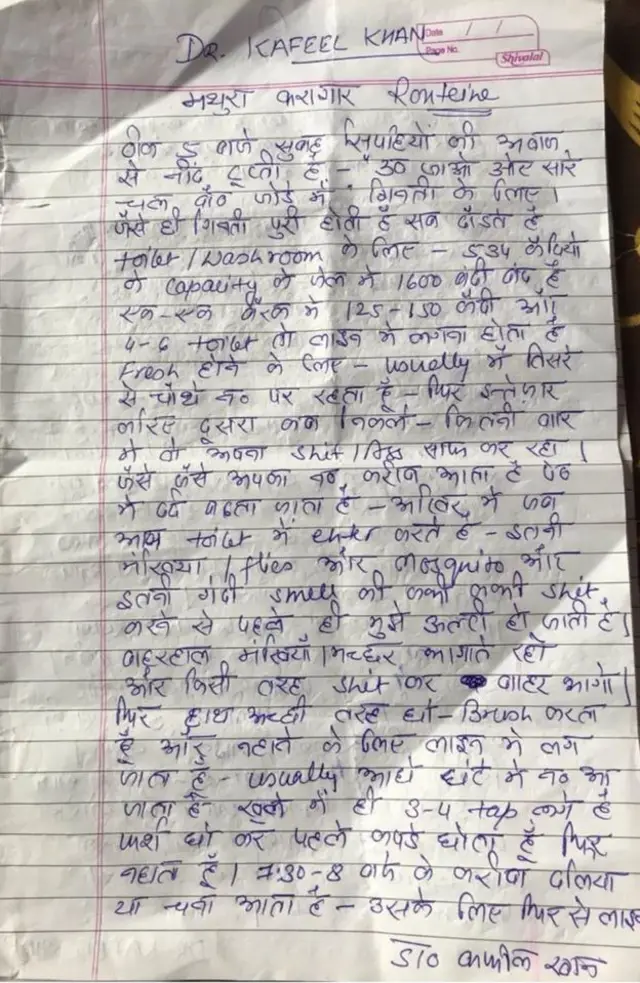 DR. KAFEEL KHAN
Date / /
Page No.
Shivalal
मथुरा कारागार Routeine
ठीक 5 बजे सुबह सिपाहियों की अवाज
से नींद टूटती है - "उठ जाओ और सारे
चलो बैठ जोड़े में" गिनती के लिए।
जैसे ही गिनती पुरी होती है सब दौडते है
toilet / washroom के लिए - 534 कैदियो
के capacity के जेल मे 1600 बंदी बंद है
एक-एक बैरक मे 125-150 कैदी और
4-6 toilet तो लाइन मे लगना होता है
Fresh होने के लिए - usually मैं तिसरे
से चौथे न० पर रहता हूँ - फिर इन्तेज़ार
करिए दूसरा कब निकले - कितनी बार
मे वो अपना shit / साफ कर रहा।
जैसे जैसे अपका न० करीब आता है पेट
मे दर्द बढता जाता है - अखिर मे जब
आप toilet मे enter करते है - इतनी
मंखिया / flies और mosquito और
इतनी गंदी smell की कभी कभी shit
करने से पहले ही मुझे उल्टी हो जाती है।
बहरहाल मंखियाँ / मच्छर भागाते रहो
और किसी तरह shit कर बाहर भागो।
फिर हाथ अच्छी तरह धो - Brush करता
हूँ और नहाने के लिए लाइन मे लग
जाता हूँ - usually आधे घंटे मे न० आ
जाता है खुले में ही 3-4 tap लगे है
फर्श धो कर पहले कपडे धोता हूँ फिर
नहाता हूँ। 7:30-8 बजे के करीब दलिया
या चना आता है - उसके लिए फिर से लाइन
डा० कफील खान